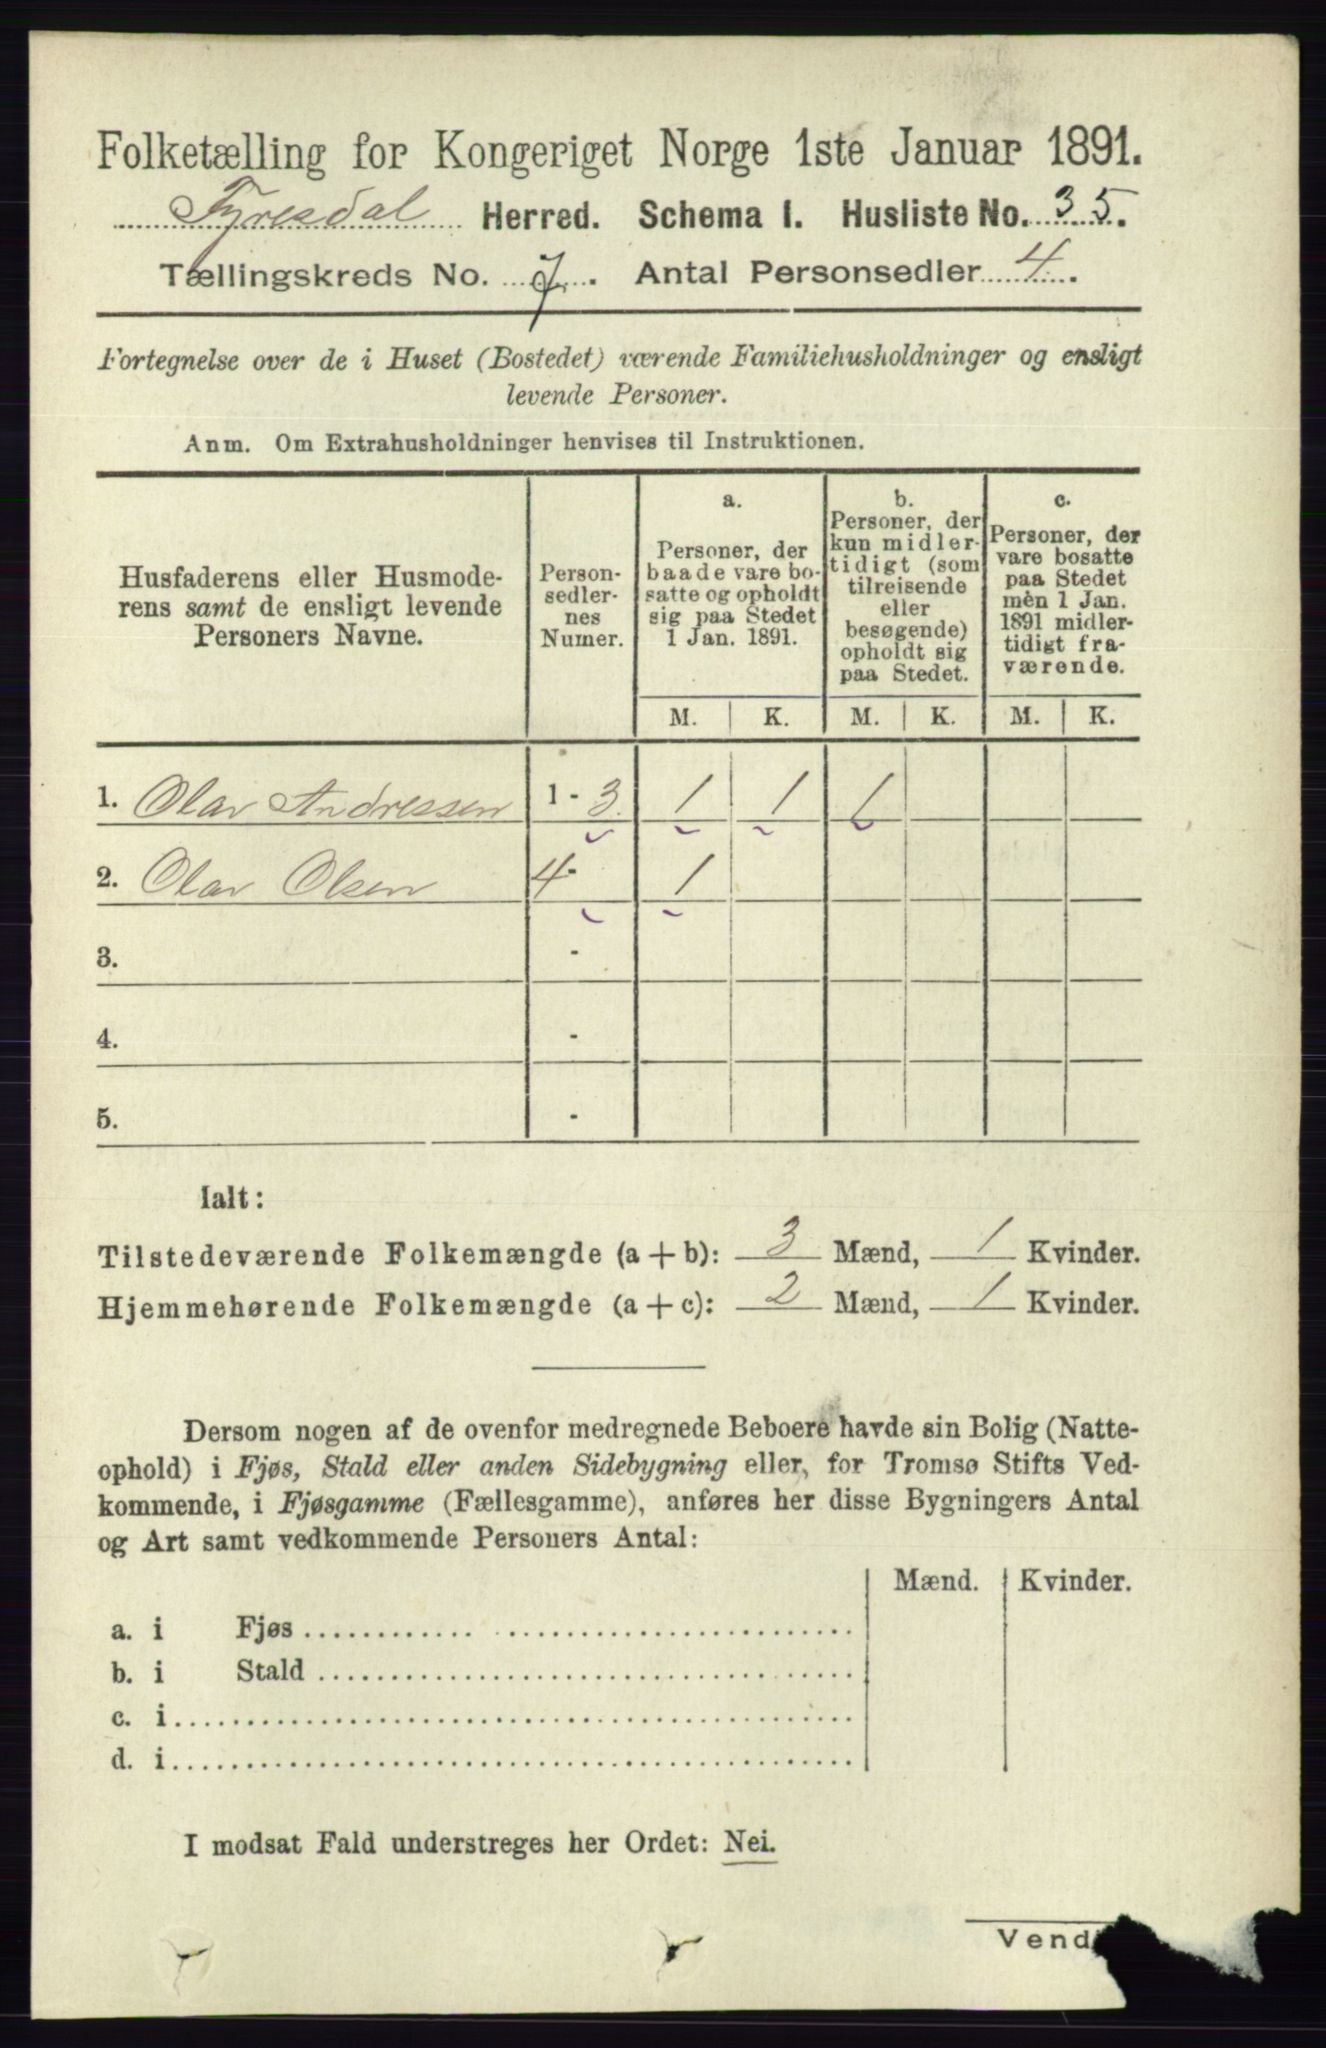 Folketælling for Kongeriget Norge 1ste Januar 1891.
Tyresdal Herred. Schema I. Husliste No. 35.
Tællingskreds No. 7. Antal Personsedler 4.
Fortegnelse over de i Huset (Bostedet) værende Familiehusholdninger og ensligt
levende Personer.
Anm. Om Extrahusholdninger henvises til Instruktionen.
Husfaderens eller Husmode-
rens samt de ensligt levende
Personers Navne.
Person-
sedler-
nes
Numer.
a.
Personer, der
baade vare bo-
satte og opholdt
sig paa Stedet
1 Jan. 1891.
b.
Personer, der
kun midler-
tidigt (som
tilreisende
eller
besøgende)
opholdt sig
paa Stedet.
c.
Personer, der
vare bosatte
paa Stedet
mèn 1 Jan.
1891 midler-
tidigt fra-
værende.
M. K. M. K. M. K.
1. Olav Andressen 1 - 3. 1 1 1
2. Olav Olsen 4- 1
3. -
4. -
5. -
Ialt:
Tilstedeværende Folkemængde (a + b): 3 Mænd, 1 Kvinder.
Hjemmehørende Folkemængde (a + c): 2 Mænd, 1 Kvinder.
Dersom nogen af de ovenfor medregnede Beboere havde sin Bolig (Natte-
ophold) i Fjøs, Stald eller anden Sidebygning eller, for Tromsø Stifts Ved-
kommende, i Fjøsgamme (Fællesgamme), anføres her disse Bygningers Antal
og Art samt vedkommende Personers Antal:
Mænd. Kvinder.
a. i Fjøs
b. i Stald
c. i
d. i
I modsat Fald understreges her Ordet: Nei.
Vend